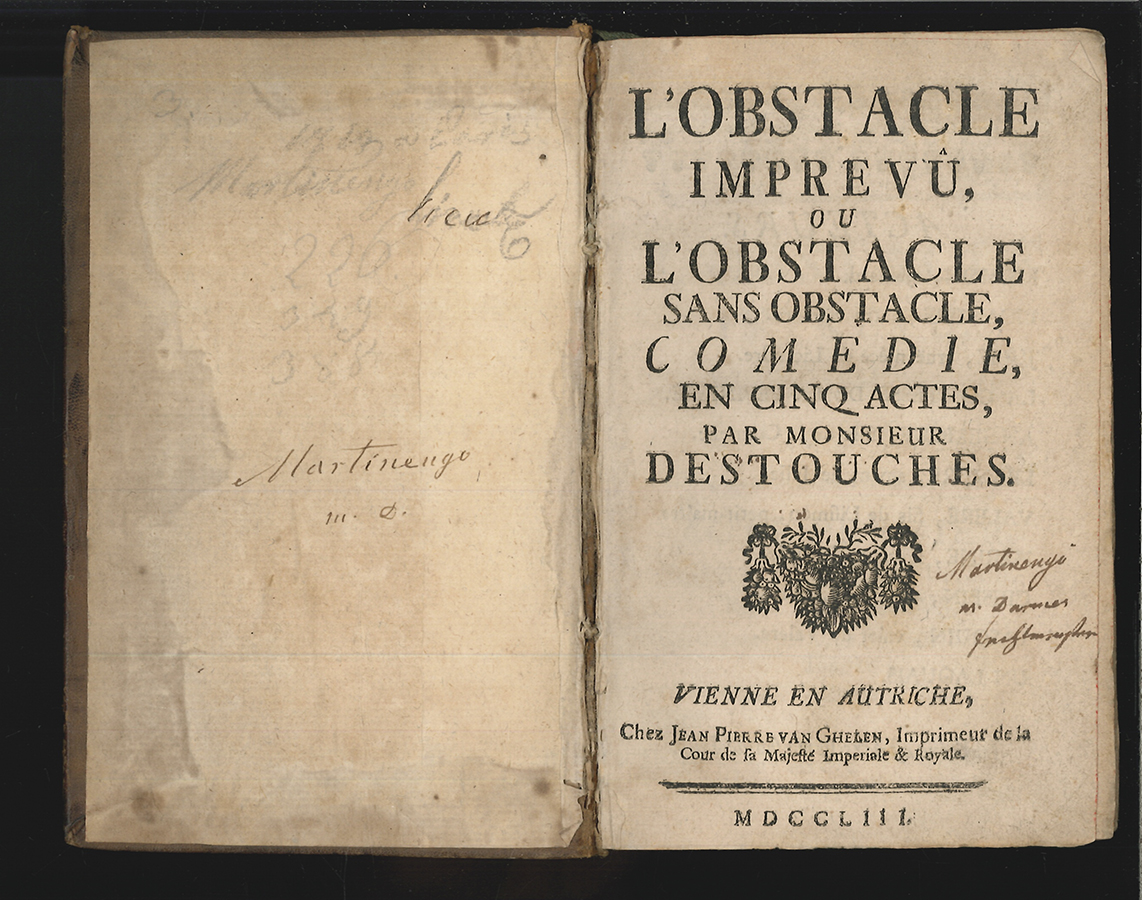 Martinengo
lieut
220
Martinengo
m. D.
L'OBSTACLE
IMPREVÛ,
OU
L'OBSTACLE
SANS OBSTACLE,
COMEDIE,
EN CINQ ACTES,
PAR MONSIEUR
DESTOUCHES.
Martinengo
VIENNE EN AUTRICHE,
Chez JEAN PIERRE VAN GHELEN, Imprimeur de la
Cour de sa Majesté Imperiale & Royale.
MDCCLIII.